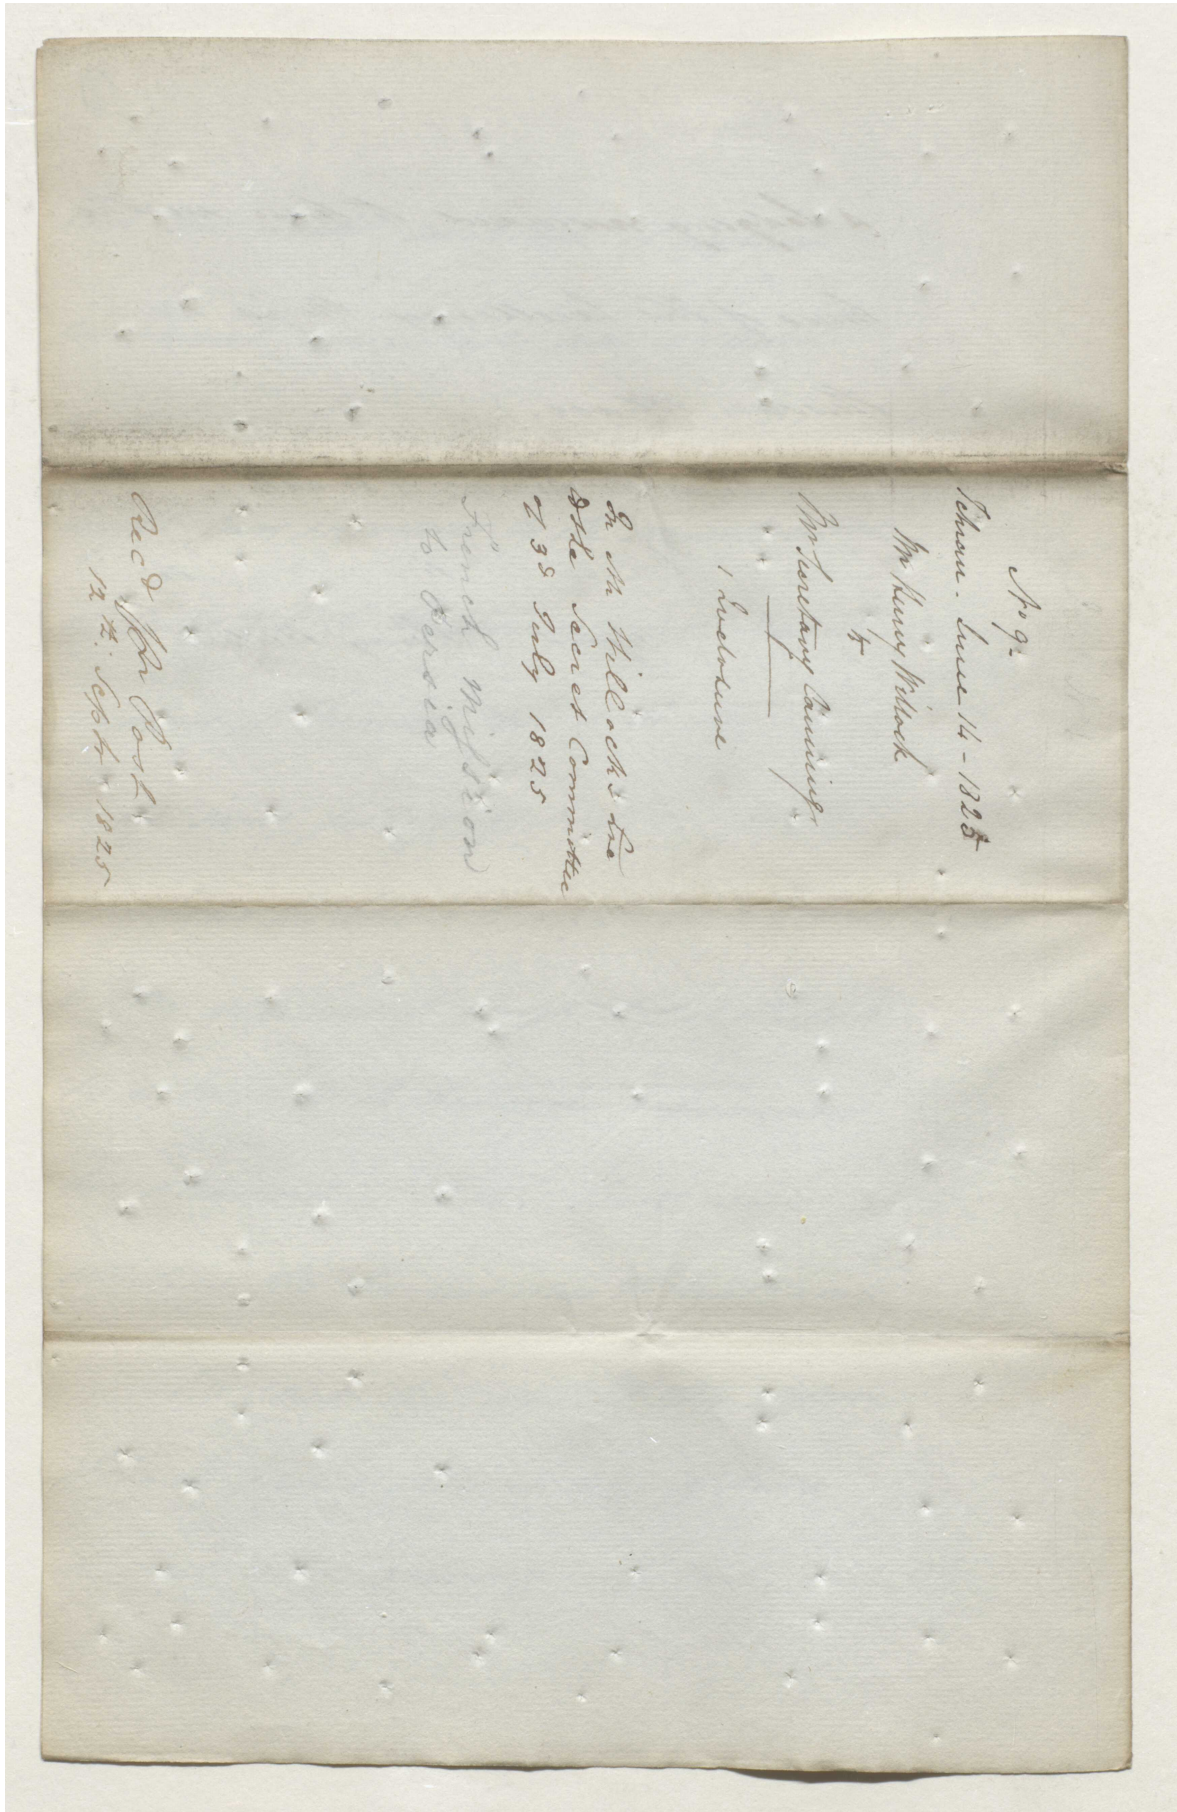 No 9.
Tehran. June 14 - 1825
Mr Henry Willock
to
Mr Secretary Canning
1 Enclosure
In Mr Willock's Lre
to the Secret Committee
of 3d July 1825
French Mission
to Persia
Recd per Post
12th. Sept. 1825